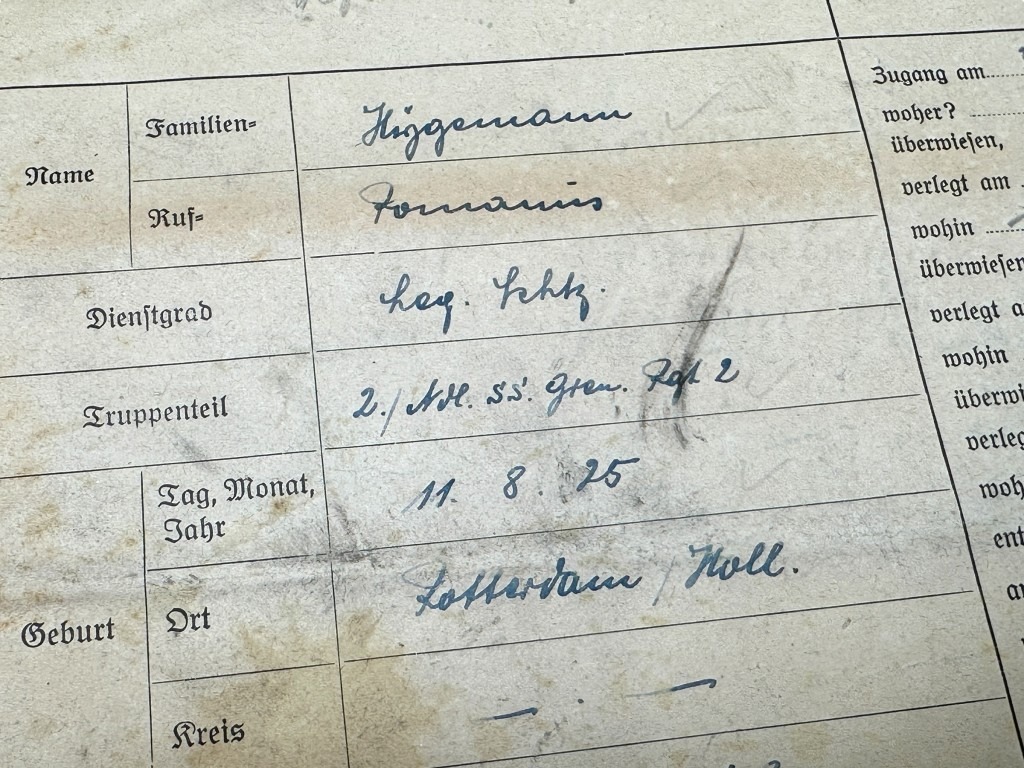 Name
Familien=
Higgemann
Ruf=
Romanus
Dienstgrad
Schtz.
Truppenteil
2./ Ndl. SS. Gren. Rgt 2
Geburt
Tag, Monat,
Jahr
11. 8. 25
Ort
Rotterdam / Holl.
Kreis
— . —
Zugang am
woher?
überwiesen,
verlegt am
wohin
überwiesen
verlegt a
wohin
überwi
verleg
woh
ent